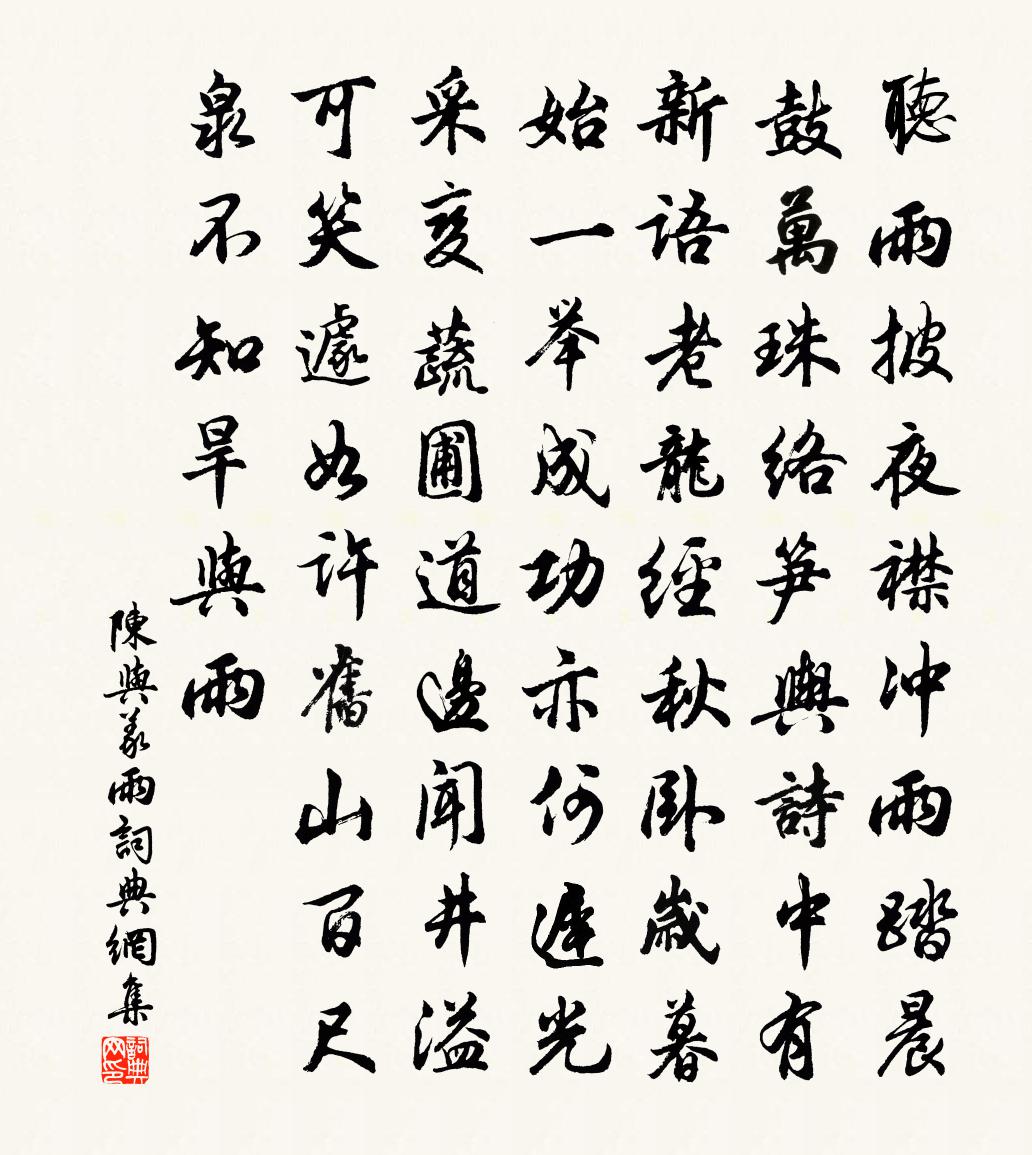 聽雨披夜襟沖雨踏晨
鼓萬珠絡笋輿詩中有
新語老龍經秋卧歲暮
始一举成功亦何遲光
采变蔬圃道邊聞井溢
可笑遽如許舊山百尺
泉不知旱與雨
陳與義雨詞典網集
詞典网印